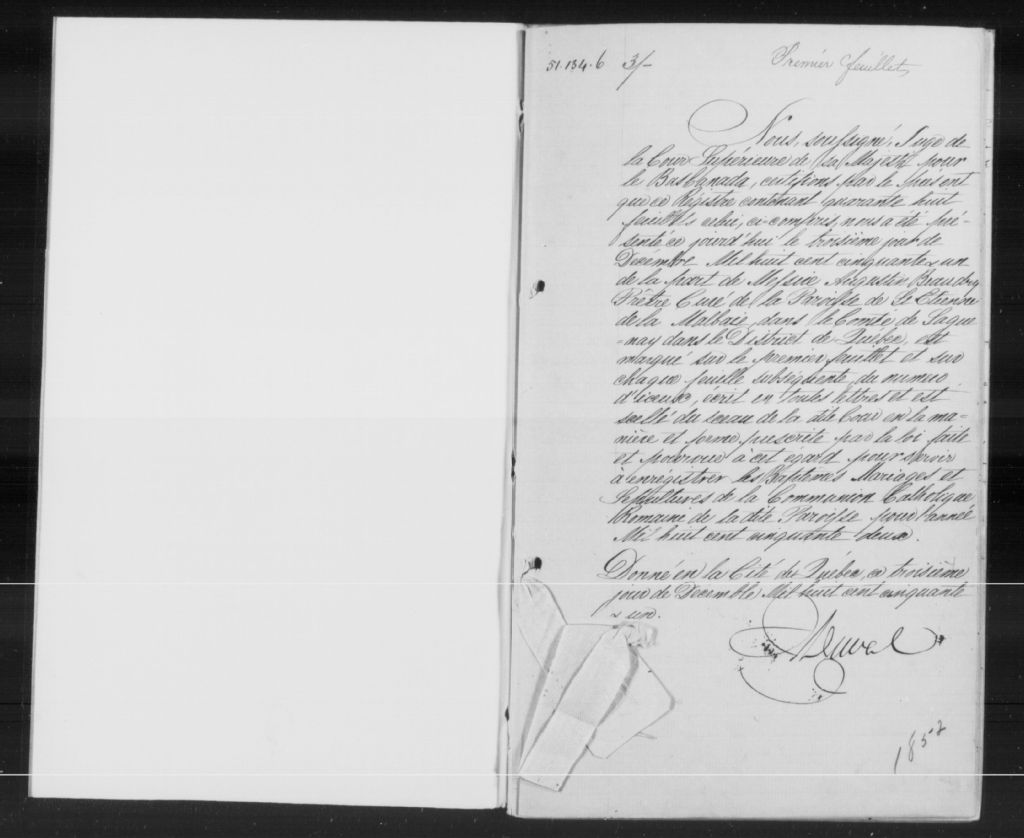 51.134.6 3/-
Premier feuillet
Nous, soussigné, Juge de
la Cour Supérieure de Sa Majesté pour
le Bas Canada, certifions par le présent
que ce Régistre contenant quarante huit
feuillets celui-ci compris, nous a été pré-
senté ce jourd'hui le troisième jour de
Decembre Mil huit cent cinquante & un
de la part de Messire Augustin Beaudry
Prêtre Curé de la Paroisse de St Etienne
de la Malbaie, dans le Comté de Sague
-nay dans le District de Québec, est
marqué sur le premier feuillet et sur
chaque feuille subséquente du numero
d'iceux, écrit en toutes lettres et est
scellé du sceau de la dite Cour en la ma-
nière et forme prescrite par la loi faite
et pourvue à cet égard pour servir
à enrégistrer les Baptêmes Mariages et
Sepultures de la Communion Catholique
Romaine de la dite Paroisse pour l'année
Mil huit cent cinquante deux.
Donné en la Cité de Québec, ce troisième
jour de Decembre Mil huit cent cinquante
& un.
Duval
1852